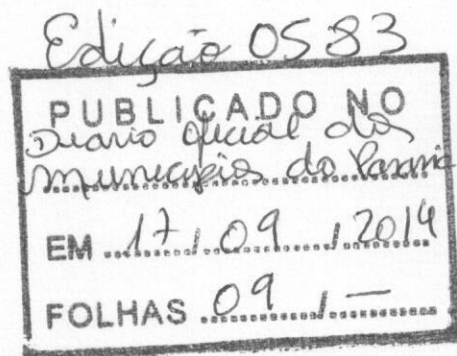 Edição 0583
PUBLICADO NO
Diario oficial dos
municipios do Paraná
EM 17 / 09 / 2014
FOLHAS 09 / —